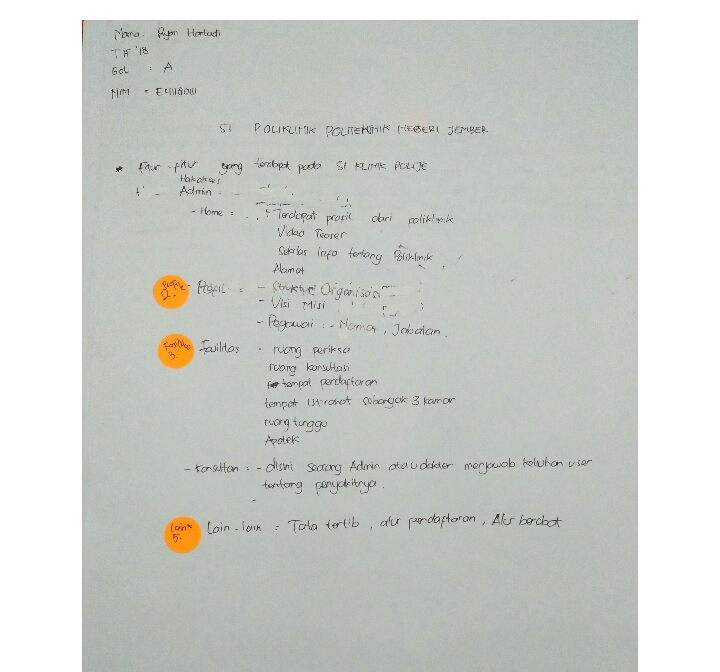 Nama: Ryan Hariadi
TIF '18
Gol : A
NIM :
SI POLIKLINIK POLITEKNIK NEGERI JEMBER
* Fitur-fitur yang terdapat pada SI KLINIK POLIJE
Hak akses
Admin
- Home : Terdapat profil dari poliklinik
Video Teaser
Sekilas Info tentang Poliklinik
Alamat
2. - Profil : - Struktur Organisasi
- Visi Misi
- Pegawai : - Nama, Jabatan.
3. Fasilitas : ruang periksa
ruang konsultasi
tempat pendaftaran
tempat istirahat sebanyak 3 kamar
ruang tunggu
Apotek
- Konsultan : - disini seorang Admin atau dokter menjawab keluhan user
tentang penyakitnya.
Lain²
5. Lain-lain = Tata tertib, alur pendaftaran, Alur berobat